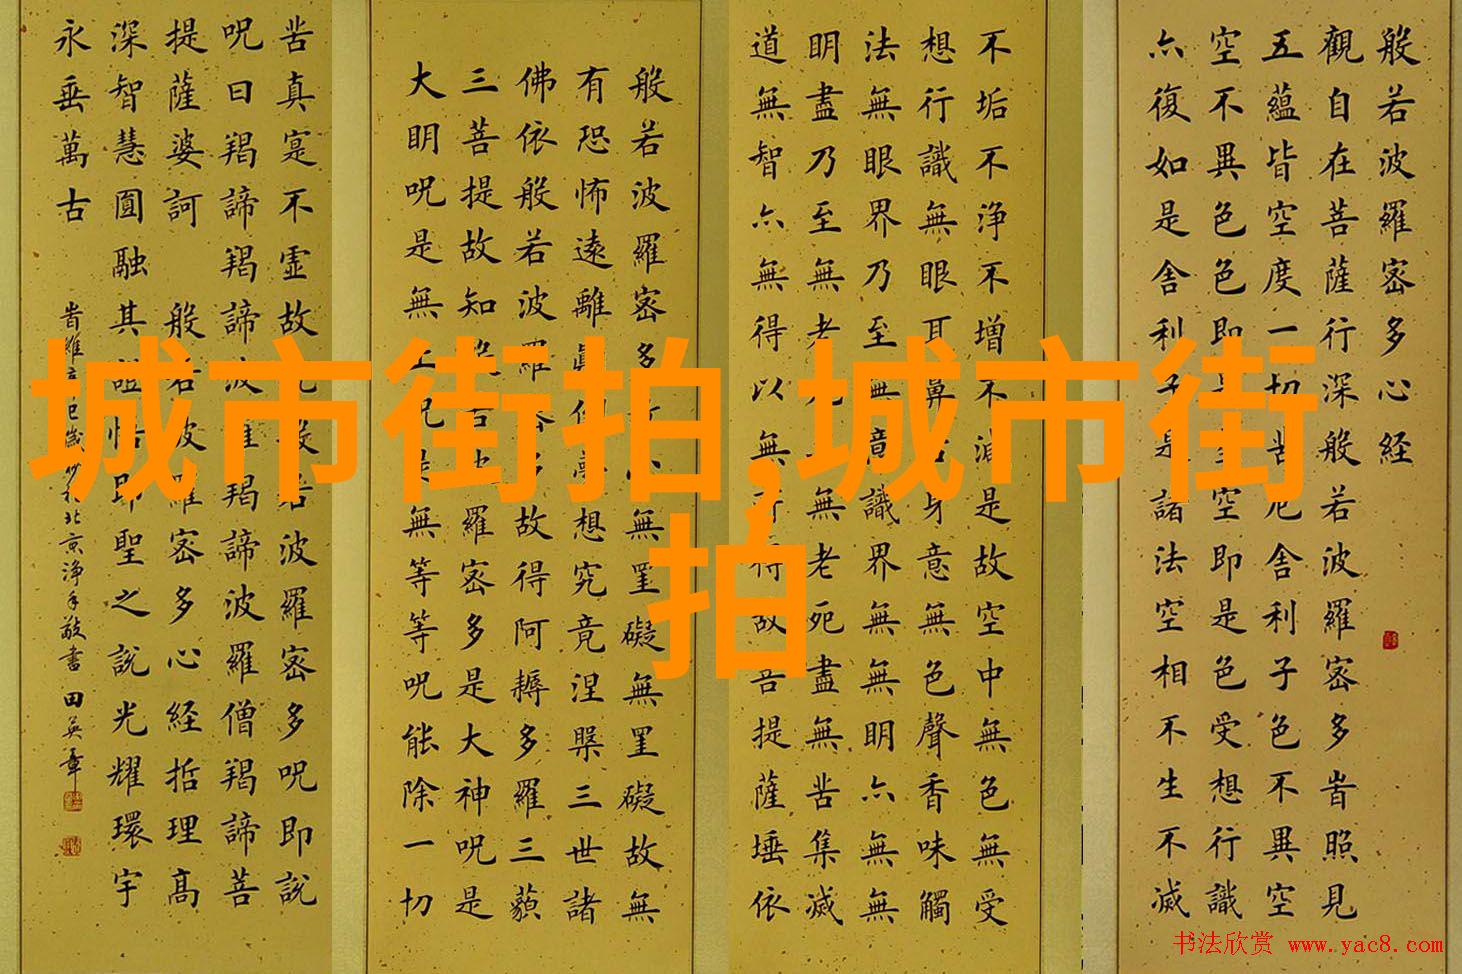 般若波羅密多心経
觀自在菩薩行深般若波羅密多旹照見
五蘊皆空度一切苦厄舎利子色不異空
空不異色色即是空空即是色受想行識
亦復如是舎利子是諸法空相不生不滅
不垢不浄不增不減是故空中無色無受
想行識無眼耳鼻舌身意無色聲香味觸
法無眼界乃至無意識界無無明亦無無
明盡乃至無老死亦無老死盡無苦集滅
道無智亦無得以無所得故菩提薩埵依
般若波羅密多故心無罣礙無罣礙故無
有恐怖遠離顛倒夢想究竟涅槃三世諸
佛依般若波羅密多故得阿耨多羅三藐
三菩提故知般若波羅密多是大神呪是
大明呪是無上呪是無等等呪能除一切
苦真寔不虛故説般若波羅密多呪即説
呪曰羯諦羯諦波羅羯諦波羅僧羯諦菩
提薩婆訶 般若波羅密多心経括理高
深智慧圓融其證悟即聖之説光耀環宇
永垂萬古
旹維 巳歲 北京浄手敬書 田英章
城市街拍,城市街
拍
书法欣赏 www.yac8.com